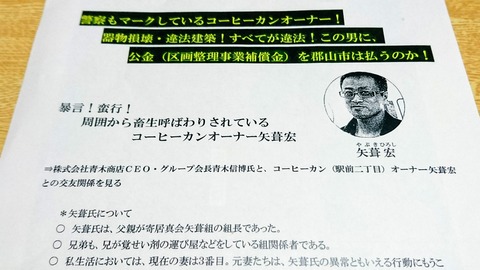 警察もマークしているコーヒーカンオーナー！
器物損壊・違法建築！すべてが違法！この男に、
公金（区画整理事業補償金）を郡山市は払うのか！
暴言！蛮行！
周囲から畜生呼ばわりされている
コーヒーカンオーナー矢葺宏
やぶきひろし
矢葺 宏
⇒株式会社青木商店ＣＥＯ・グループ会長青木信博氏と、コーヒーカン（駅前二丁目）オーナー矢葺宏
との交友関係を見る
＊矢葺氏について
○ 矢葺氏は、父親が寄居真会矢葺組の組長であった。
○ 兄弟も、兄が覚せい剤の運び屋などをしている組関係者である。
○ 私生活においては、現在の妻は3番目。元妻たちは、矢葺氏の異常ともいえる行動にもうこ